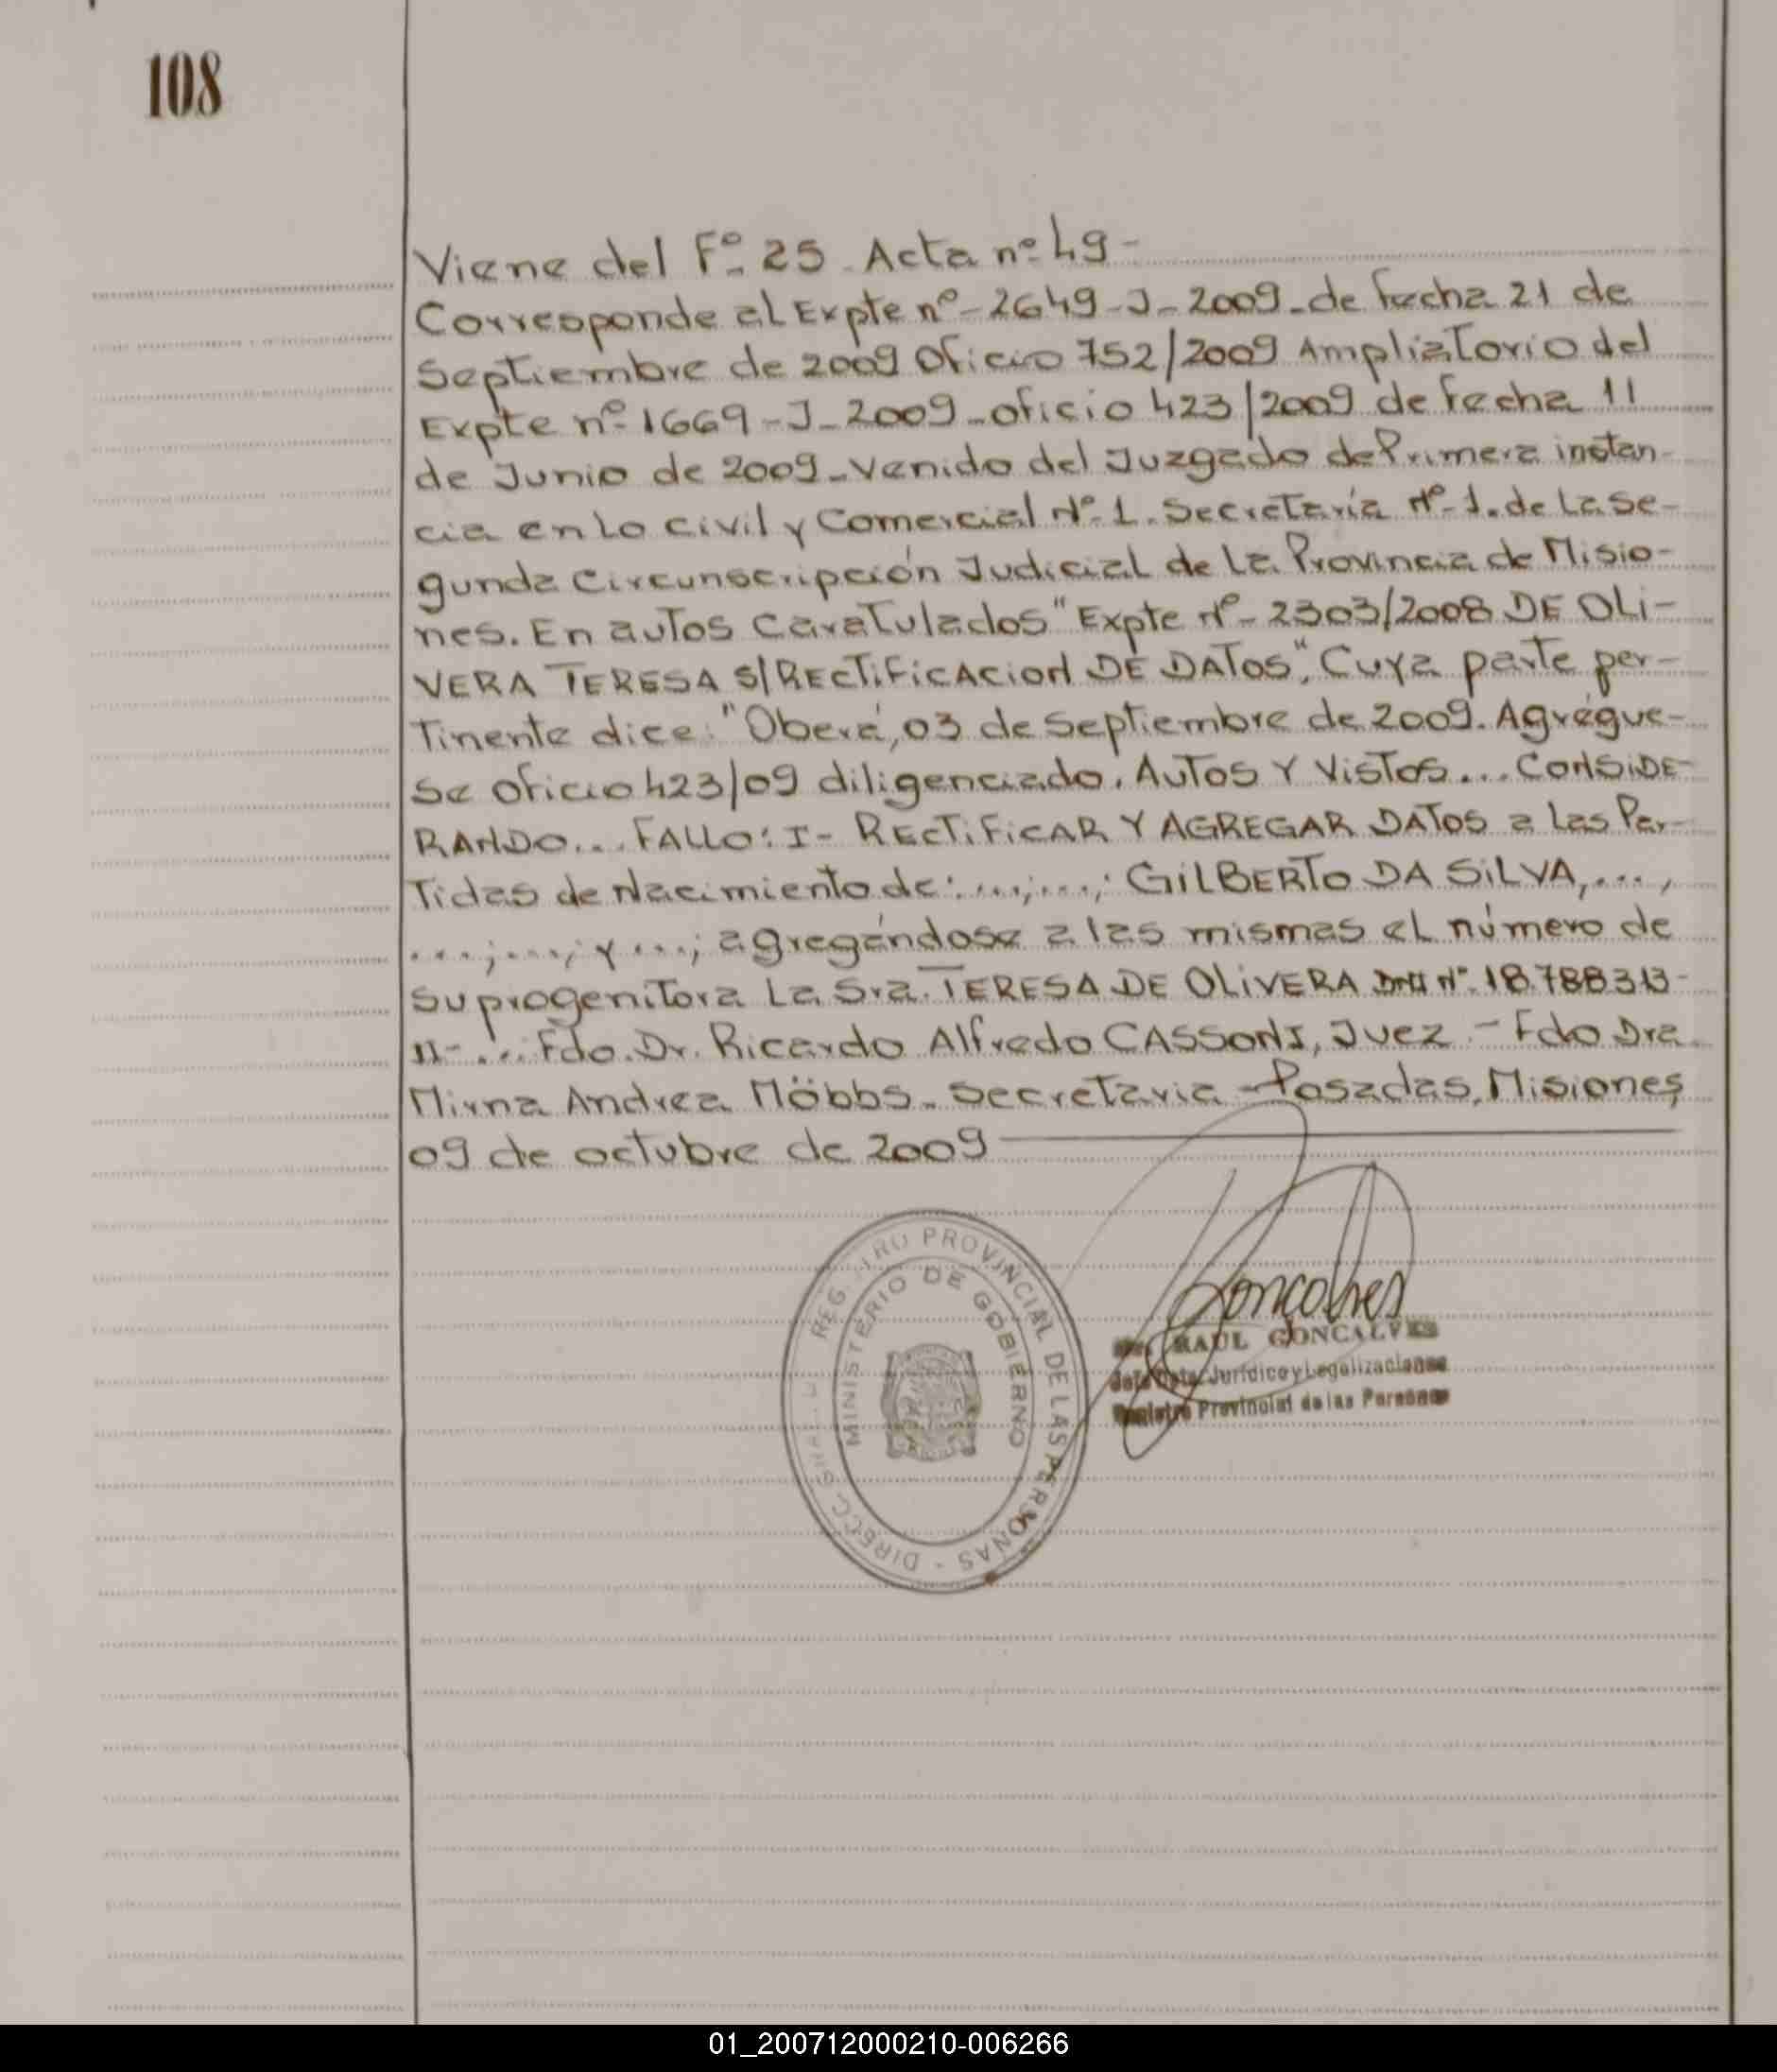 108
Viene del Fº 25. Acta nº 49-
Corresponde al Expte nº-2649-J-2009-de fecha 21 de
Septiembre de 2009 Oficio 752/2009 Ampliatorio del
Expte nº 1669-J-2009-oficio 423/2009 de fecha 11
de Junio de 2009-Venido del Juzgado de Primera instan-
cia en Lo Civil y Comercial Nº 1. Secretaría Nº 1. de La Se-
gunda Circunscripción Judicial de La Provincia de Misio-
nes. En autos Caratulados "Expte Nº- 2303/2008 DE OLI-
VERA TERESA S/RECTIFICACION DE DATOS", Cuya parte per-
Tinente dice: "Oberá, 03 de Septiembre de 2009. Agrégue-
se Oficio 423/09 diligenciado. AUTOS Y VISTOS... CONSIDE-
RANDO... FALLO: I- RECTIFICAR Y AGREGAR DATOS a las Par-
Tidas de Nacimiento de: ...;...; GILBERTO DA SILVA,...,
...;...; y...; agregándose a las mismas el número de
su progenitora La Sra. TERESA DE OLIVERA DNI Nº 18.788313-
II-... Fdo. Dr. Ricardo Alfredo CASSONI, Juez.- Fdo Dra.
Mirna Andrea Möbbs- Secretaria-Posadas, Misiones,
09 de octubre de 2009
REGISTRO PROVINCIAL DE LAS PERSONAS - DIRECC.
MINISTERIO DE GOBIERNO
Gonçalves
RAUL GONCALVES
Jefe Dpto. Jurídico y Legalizaciones
Registro Provincial de las Personas
01_200712000210-006266